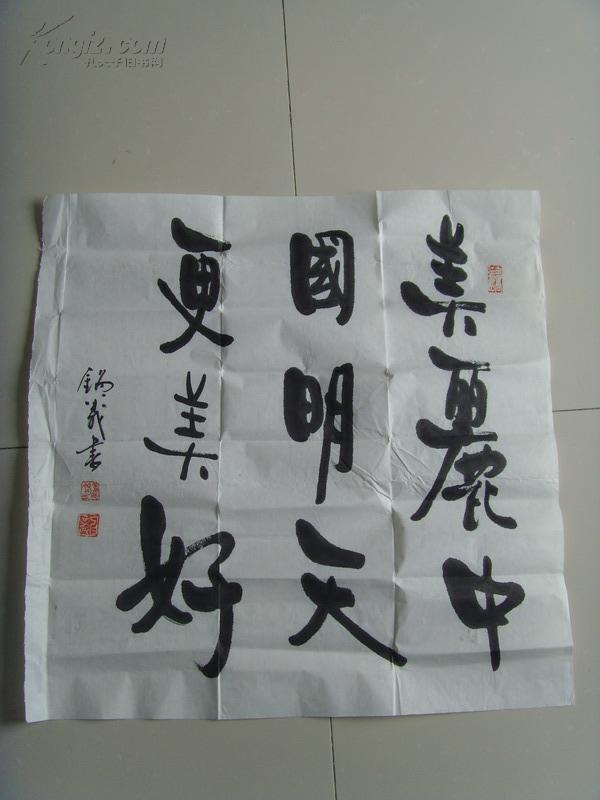 美麗中
國明天
更美好
Kongfz.com
孔夫子旧书网